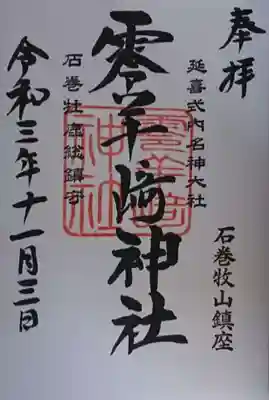 奉拝
延喜式内名神大社
石巻牧山鎮座
零羊﨑神社
石巻牡鹿総鎮守
令和三年十一月三日
零羊崎神社